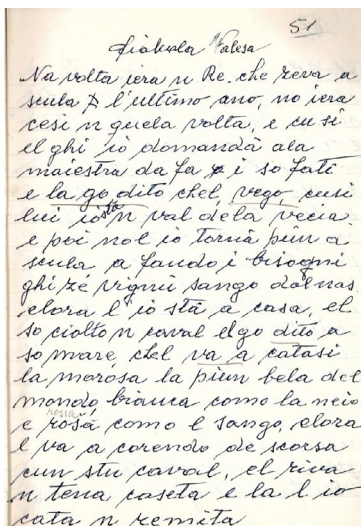 51
Fiabula Valesa
Na volta iera n Re. che zeva a
scula l'ultimo ano, no iera
cesi n quela volta, e cu si
el ghi io domandà ala
maiestra da fa i so fati
e la go dito chel, vego cusi
lui io stà n val dela vecia
e poi nol io tornà piun a
scula, a fando i bisogni
ghi zé vignù sango dal nas,
elora l'io stà a casa, el
so ciolto n caval el go dito a
so mare, chel va a catasi
la morósa la piun bela del
mondo bianca como la neio
rossa
e rosà como l sango, elora
l va a corendo de scorsa
cun stu caval, el riva
n tena caseta e la l io
catà n remita